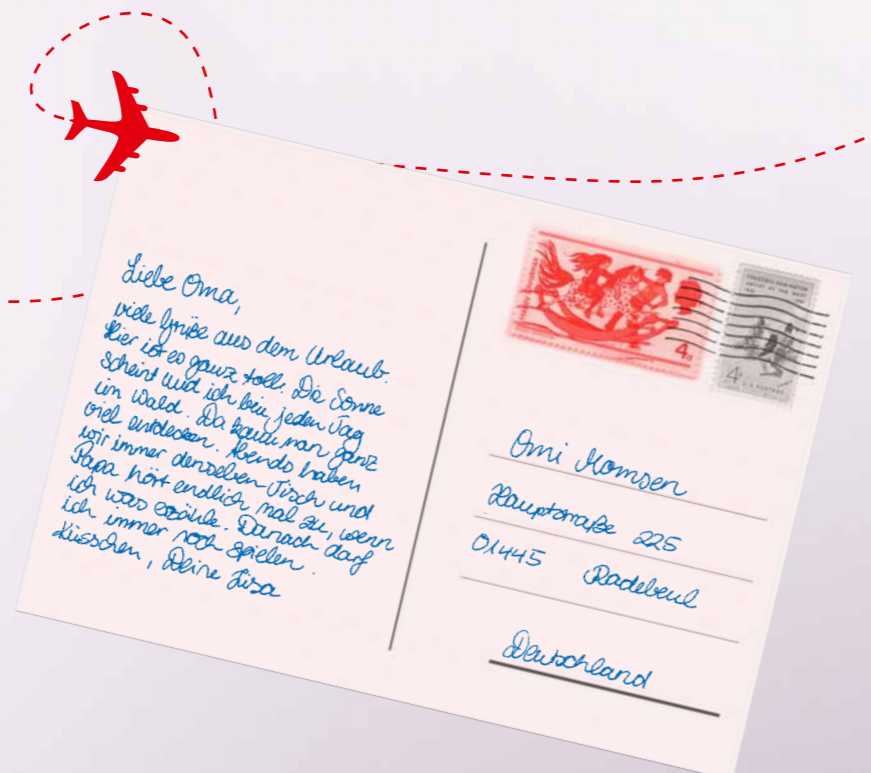 Liebe Oma,
viele Grüße aus dem Urlaub.
Hier ist es ganz toll. Die Sonne
scheint und ich bin jeden Tag
im Wald. Da kann man ganz
viel entdecken. Abends haben
wir immer denselben Tisch und
Papa hört endlich mal zu, wenn
ich was erzähle. Danach darf
ich immer noch spielen.
Küsschen, Deine Lisa
4d
4c U.S. POSTAGE
Omi Momsen
Hauptstraße 225
01445 Radebeul
Deutschland